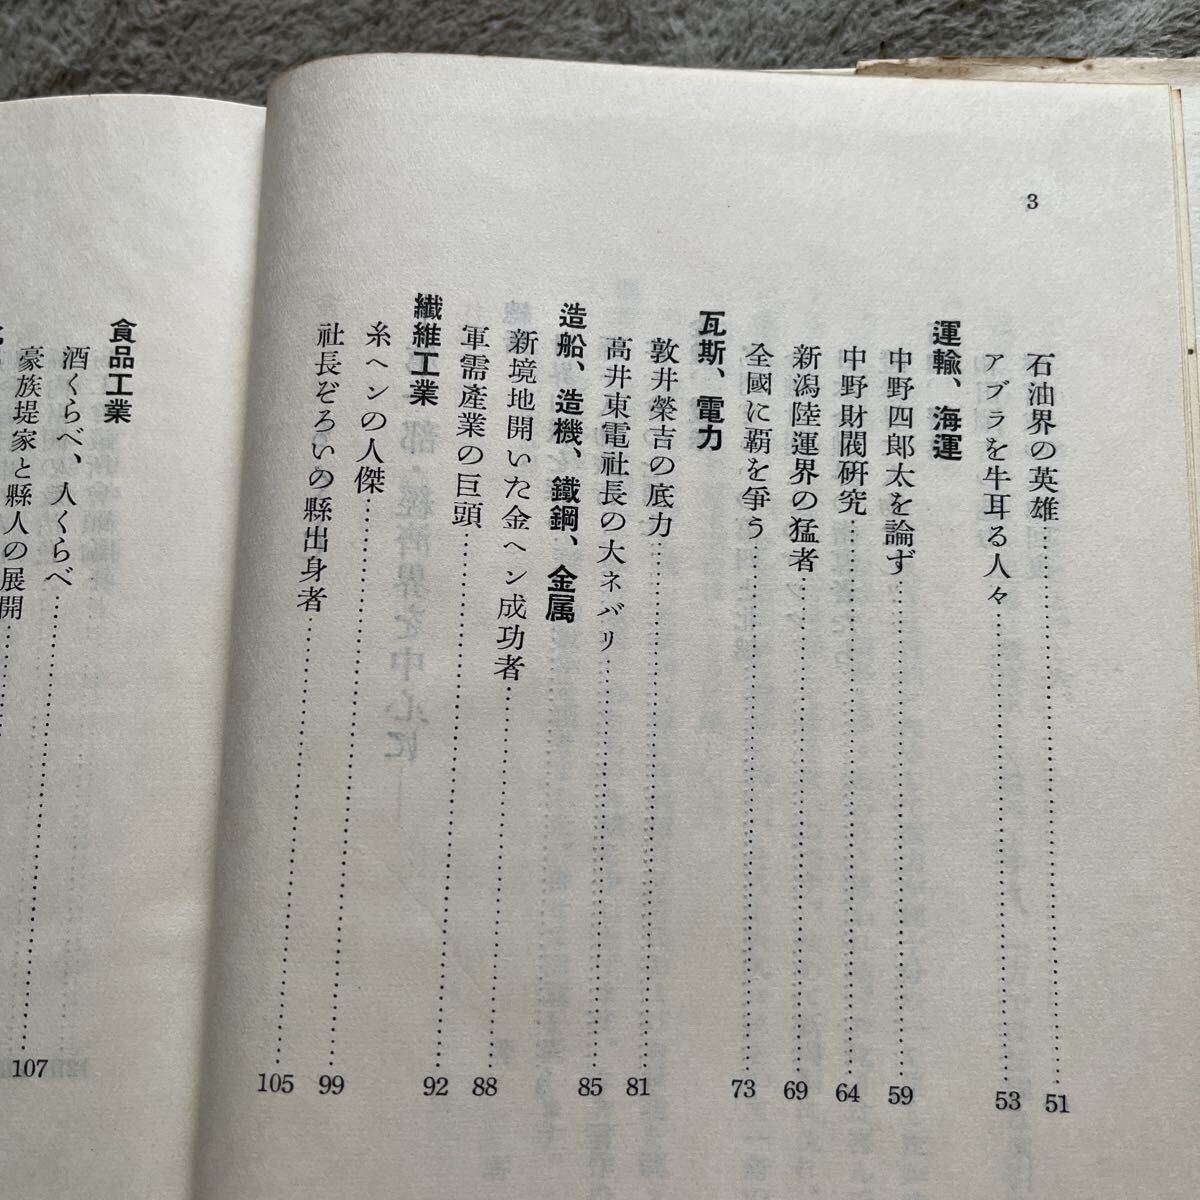 3
石油界の英雄……51
アブラを牛耳る人々……53
運輸、海運
中野四郎太を論ず……59
中野財閥研究……64
新潟陸運界の猛者……69
全國に覇を爭う……73
瓦斯、電力
敦井榮吉の底力……81
高井東電社長の大ネバリ……85
造船、造機、鐵鋼、金属
新境地開いた金ヘン成功者……88
軍需產業の巨頭……92
纖維工業
糸ヘンの人傑……99
社長ぞろいの縣出身者……105
食品工業
酒くらべ、人くらべ……107
豪族堤家と縣人の展開